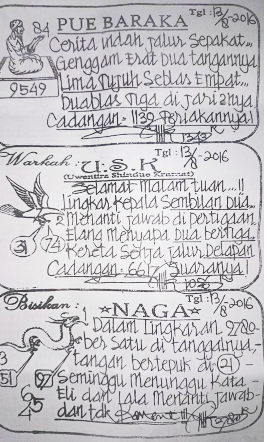 84
PUE BARAKA
Tgl: 13/8-2016
Cerita indah jalur Sepakat...
Genggam Erat Dua tangannya
Lima Tujuh Seblas Empat...
Duablas Tiga di jari2nya
9549
Cadangan = 1139 Teriakannya!
1349
Warkah: U.S.K
Tgl: 13/8-2016
(Uwentira Shindue Kramat)
Selamat malam tuan...!!
Lingkar Kepala Sembilan Dua...
Menanti jawab di pertigaan
Elang Menyapa Dua bertiga
31
74
Kereta Senja jalur Delapan
Cadangan = 6617 Suaranya!
1036
Bisikan: NAGA
Tgl: 13/8-2016
Dalam Lingkaran 9780-
ber Satu di tanggalnya-
tangan bertepuk di 21-
51
97
Seminggu Menunggu Kata-
Eli dan Lala Menanti Jawab-
dan tak